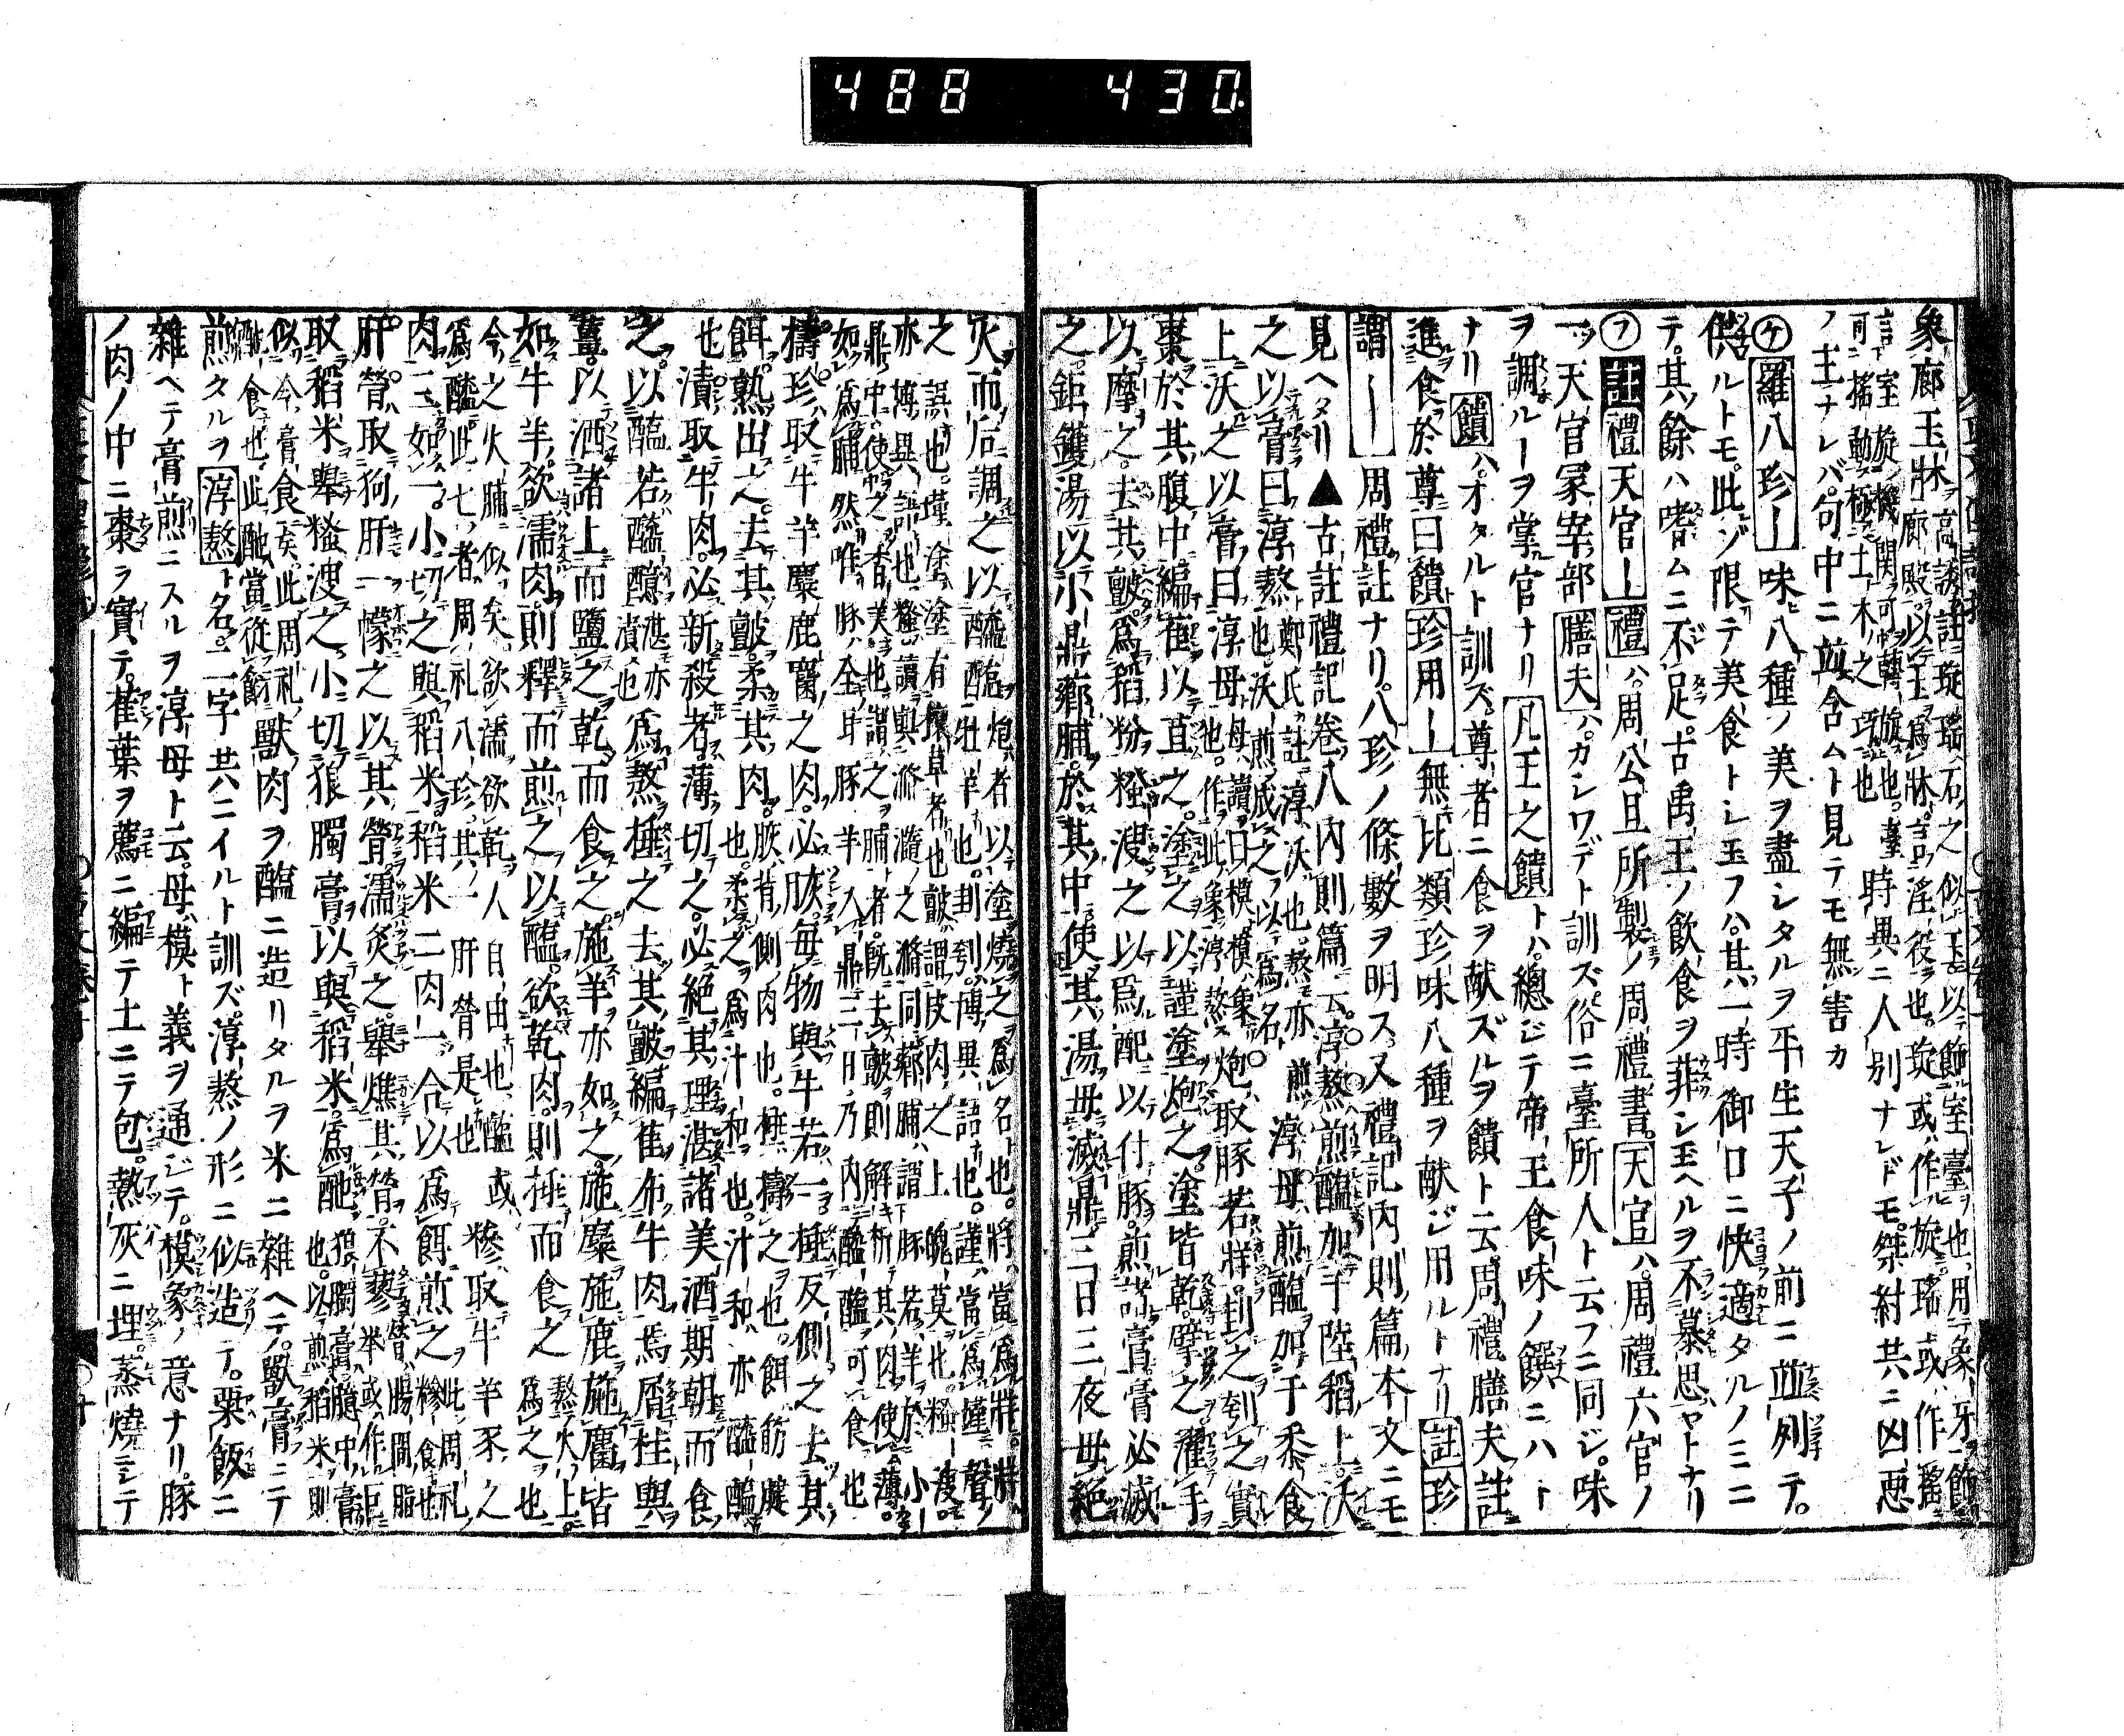 488 430
象廊玉牀高誘註琁瑤石之似玉以飾室臺也用象牙飾
廊殿以玉爲牀言淫役也琁或作旋瑤或作搖
言室旋機関可轉旋也臺
可搖動極土木之巧也時異ニ人別ナレドモ桀紂共ニ凶悪
ノ主ナレバ句中ニ並含ムト見テモ無害カ
ケ羅八珍―味八種ノ美ヲ盡シタルヲ平生天子ノ前ニ並列テ
供ルトモ此ゾ限テ美食トシ玉フハ其一時御口ニ快適タルノミニ
テ其餘ハ嗜ムニ不足古禹王ノ飲食ヲ菲シ玉ヘルヲ不慕思ヤトナリ
フ註禮天官―禮ハ周公旦所製ノ周禮書天官ハ周禮六官ノ
一ツ天官冢宰部膳夫ハカシワデト訓ズ俗ニ臺所人ト云フニ同ジ味
ヲ調ルーヲ掌官ナリ凡王之饋トハ總ジテ帝王食味ノ饌ニハト
ナリ饋ハオクルト訓ズ尊者ニ食ヲ献ズルヲ饋ト云周禮膳夫註
進食於尊曰饋珍用―無比類珍味八種ヲ献ジ用ルトナリ註珍
謂――周禮註ナリ八珍ノ條數ヲ明ス又禮記内則篇本文ニモ
見ヘタリ▲古註禮記卷八内則篇云淳熬煎醢加于陸稻上沃
之以膏曰淳熬鄭氏註淳沃也熬亦煎
也沃煎成之以爲名淳母煎醢加于黍食
上沃之以膏曰淳母母讀曰模模象
也作此象淳熬炮取豚若牂刲之刳之實
棗於其腹中編萑以苴之塗之以謹塗炮之塗皆乾擘之濯手
以摩之去其皽爲稻粉糔溲之以爲酏以付豚煎諸膏膏必滅
之鉅鑊湯以小鼎薌脯於其中使其湯毋滅鼎三日三夜毋絶
火而后調之以醯醢炮者以塗燒之爲名也將當爲牂牂
牡羊也刲刳博異語也謹當爲墐聲
之誤也墐塗塗有穰草者也皽謂皮肉之上魄莫也糔溲
亦博異語也糔讀與滫瀡之滫同薌脯謂煮豚若羊於小
鼎中使之香美也謂之脯者既去皽則解析其肉使薄
如爲脯然唯豚全耳豚羊入鼎三日乃内醯醢可食也
擣珍取牛羊麋鹿麕之肉必脄毎物與牛若一捶反側之去其
餌熟出之去其皽柔其肉脄脊側肉也捶擣之也餌筋腱
也柔之爲汁和也汁和亦醯醢
也漬取牛肉必新殺者薄切之必絶其理湛諸美酒期朝而食
之以醢若醯醷湛亦
漬也爲熬捶之去其皽編萑布牛肉焉屑桂與
薑以洒諸上而鹽之乾而食之施羊亦如之施麋施鹿施麕皆
如牛羊欲濡肉則釋而煎之以醢欲乾肉則捶而食之熬火上
爲之也
今之火脯似矣欲濡欲乾人自由也醢或
爲醯此七者周礼八珍其一肝膋是也糝取牛羊豕之
肉三如一小切之與稻米稻米二肉一合以爲餌煎之此周礼
糝食也
肝膋取狗肝一幪之以其膋濡炙之舉燋其膋不蓼膋腸間脂
舉或作巨
取稻米舉糔溲之小切狼臅膏以與稻米爲酏狼臅膏臆中膏
也以煎稻米則
似今膏𩜾矣此周礼
酏食也此酏當從𩜾獸肉ヲ醢ニ造リタルヲ米ニ雜ヘテ獸膏ニテ
煎タルヲ淳熬ト名二字共ニイルト訓ズ淳熬ノ形ニ似造テ粟飯ニ
雜ヘテ膏煎ニスルヲ淳母ト云母模ト義ヲ通ジテ模象ノ意ナリ豚
ノ肉ノ中ニ棗ヲ實テ萑葉ヲ薦ニ編テ土ニテ包熱灰ニ埋蒸燒ニシテ